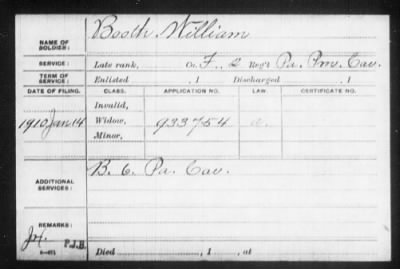 NAME OF SOLDIER: Booth, William
SERVICE: Late rank, Co. F, 2 Reg't Pa. Prv. Cav.
TERM OF SERVICE: Enlisted , 1 Discharged , 1
DATE OF FILING. CLASS. APPLICATION NO. LAW. CERTIFICATE NO.
Invalid,
1910 Jan 14 Widow, 933754
Minor,
ADDITIONAL SERVICES: B. 6. Pa. Cav.
REMARKS:
P.J.B.
Died , 1 , at